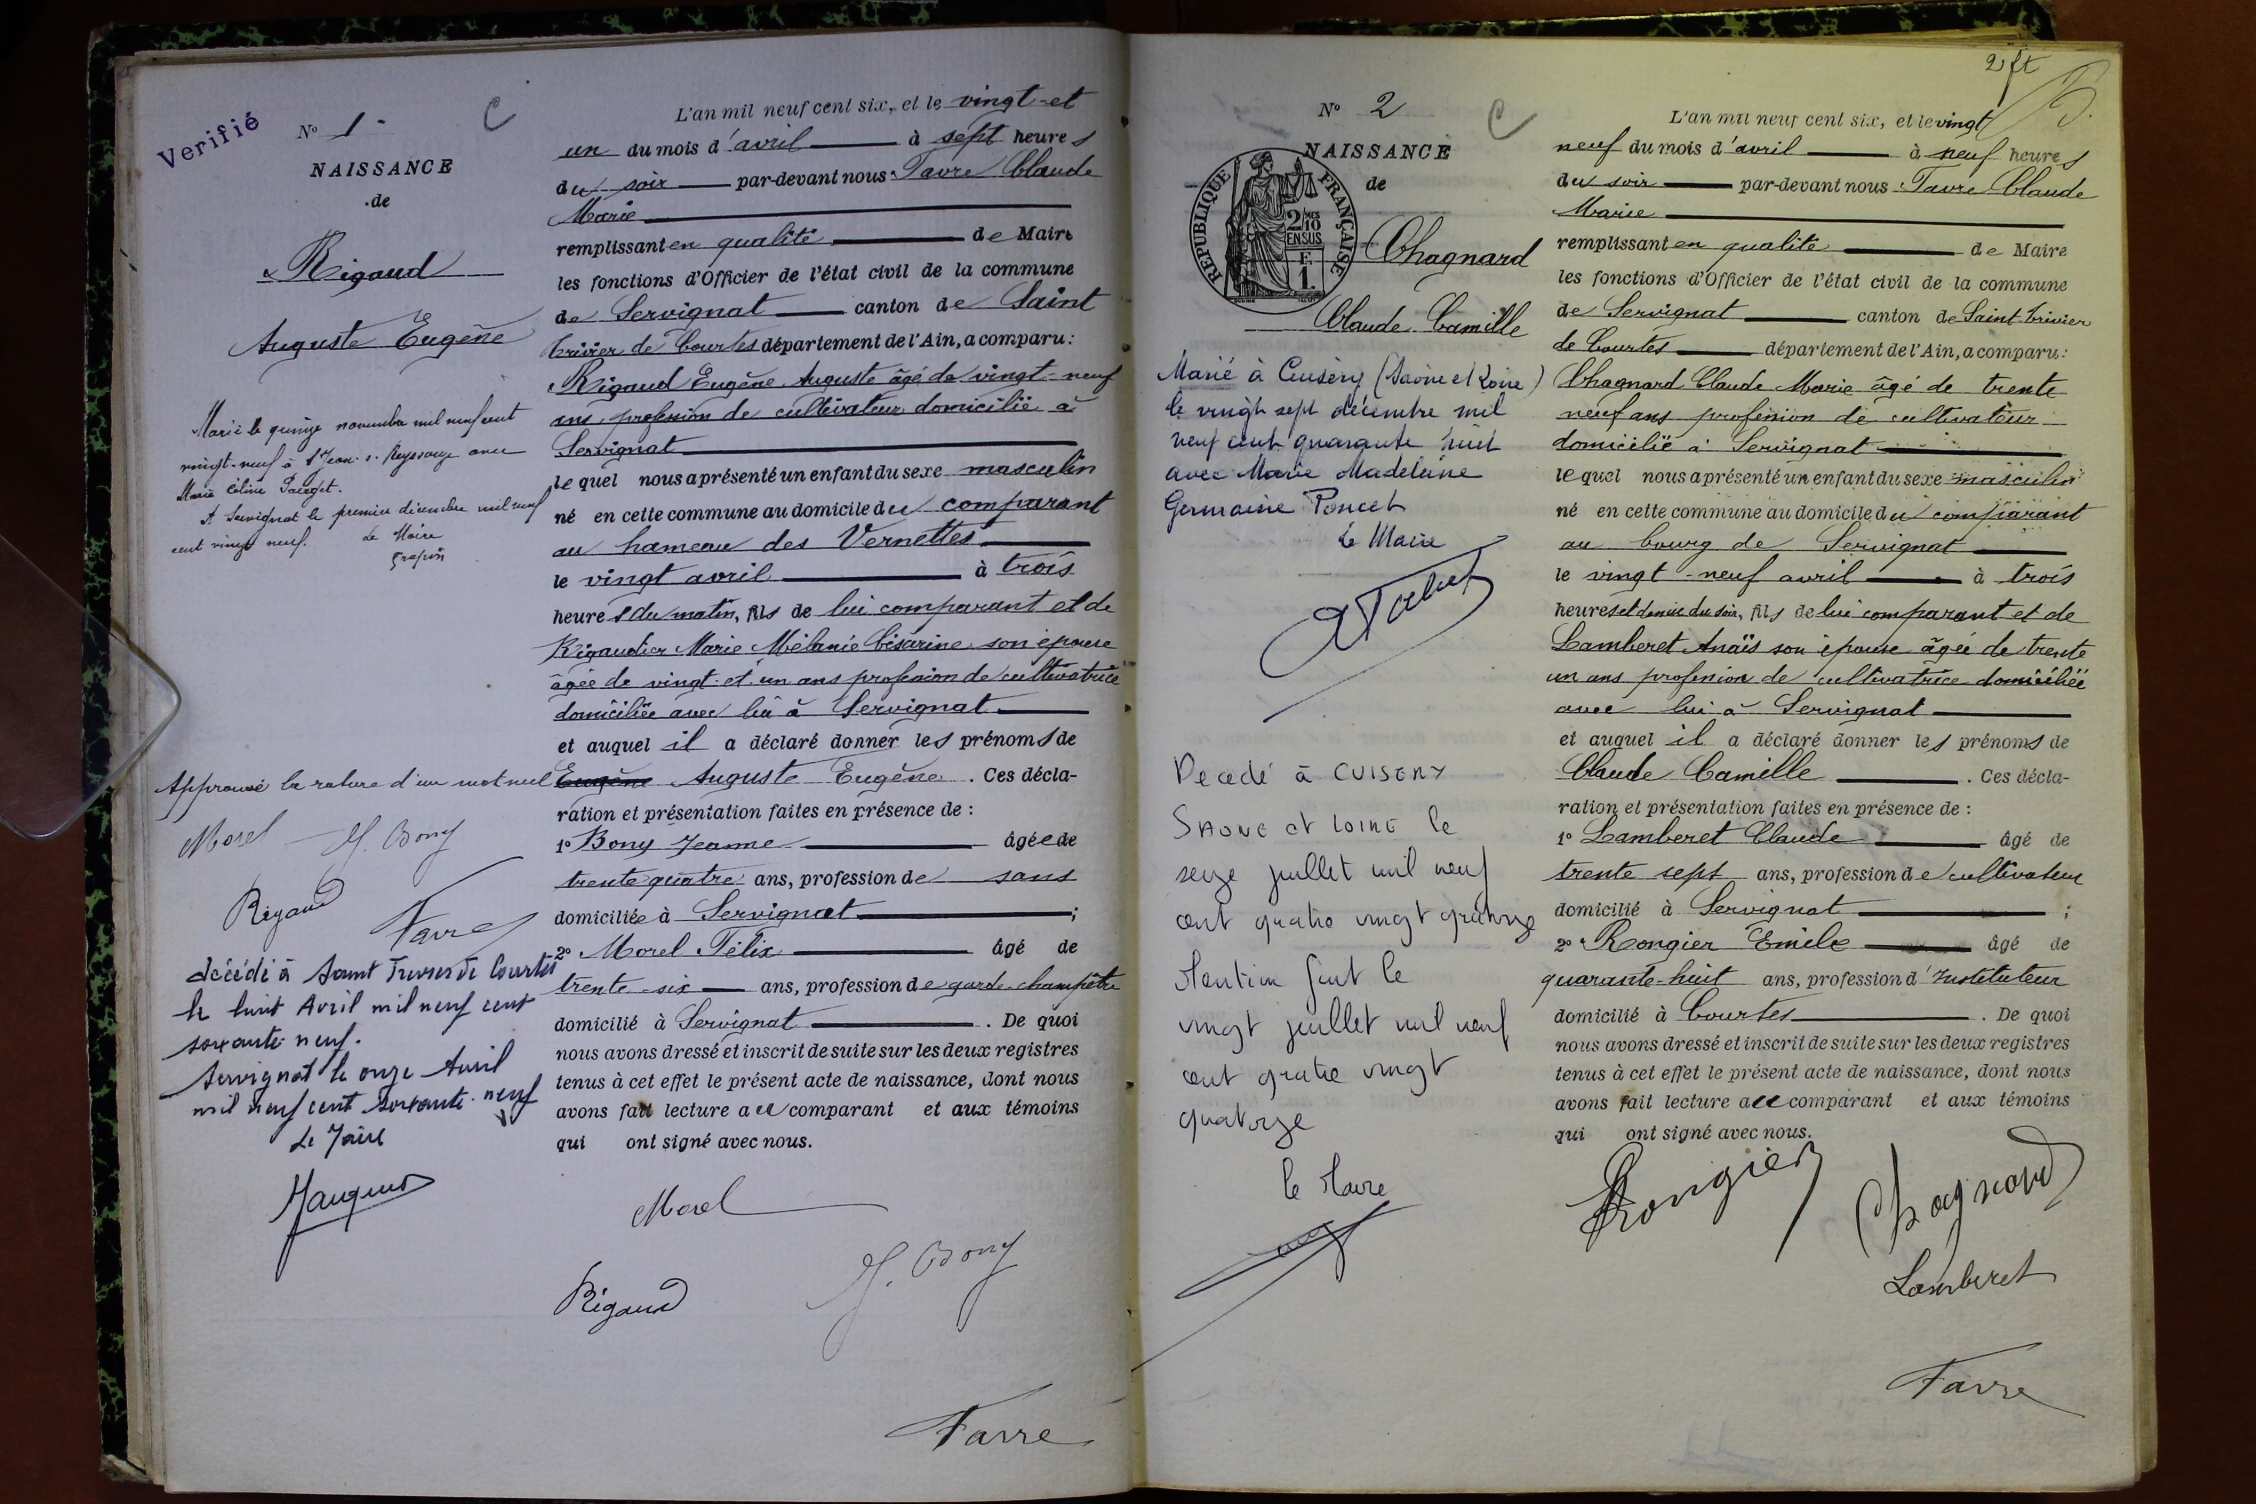 Verifié
N° 1
C
NAISSANCE
de
Rigaud
Auguste Eugène
Marié le quinze novembre mil neuf cent
vingt-neuf à St Jean s. Reyssouze avec
Marie Céline
A Servignat le premier décembre mil neuf
cent vingt neuf. Le Maire
Approuvé la rature d'un mot nul
Morel J. Bony
Rigaud
Favre
décédé à Saint Trivier de Courtes
le huit Avril mil neuf cent
soixante neuf.
Servignat le onze Avril
mil neuf cent soixante neuf
Le Maire
L'an mil neuf cent six, et le vingt-et
un du mois d'avril à sept heures
du soir par-devant nous Favre Claude
Marie
remplissant en qualité de Maire
les fonctions d'Officier de l'état civil de la commune
de Servignat canton de Saint
trivier de Courtes département de l'Ain, a comparu :
Rigaud Eugène Auguste âgé de vingt-neuf
ans, profession de cultivateur domicilié à
Servignat
lequel nous a présenté un enfant du sexe masculin
né en cette commune au domicile du comparant
au hameau des Vernettes
le vingt avril à trois
heures du matin, fils de lui comparant et de
Rigaudier Marie Mélanie Césarine son épouse
âgée de vingt-et-un ans profession de cultivatrice
domiciliée avec lui à Servignat
et auquel il a déclaré donner les prénoms de
Eugène Auguste Eugène. Ces décla-
ration et présentation faites en présence de :
1° Bony Jeanne âgée de
trente quatre ans, profession de sans
domiciliée à Servignat ;
2° Morel Félix âgé de
trente-six ans, profession de garde-champêtre
domicilié à Servignat. De quoi
nous avons dressé et inscrit de suite sur les deux registres
tenus à cet effet le présent acte de naissance, dont nous
avons fait lecture au comparant et aux témoins
qui ont signé avec nous.
Morel
J. Bony
Rigaud
Favre
2 ft
N° 2
C
NAISSANCE
de
REPUBLIQUE FRANÇAISE
2/10 MES
EN SUS
F.
1.
Chagnard
Claude Camille
Marié à Cuisery (Saône et Loire)
le vingt sept décembre mil
neuf cent quarante huit
avec Marie Madeleine
Germaine Poncet
Le Maire
Décédé à CUISERY
SAONE et LOIRE le
seize juillet mil neuf
cent quatre vingt quatorze
Mention faite le
vingt juillet mil neuf
cent quatre vingt
quatorze
le Maire
L'an mil neuf cent six, et le vingt
neuf du mois d'avril à neuf heures
du soir par-devant nous Favre Claude
Marie
remplissant en qualité de Maire
les fonctions d'Officier de l'état civil de la commune
de Servignat canton de Saint-trivier
de Courtes département de l'Ain, a comparu :
Chagnard Claude Marie âgé de trente
neuf ans profession de cultivateur
domicilié à Servignat
lequel nous a présenté un enfant du sexe masculin
né en cette commune au domicile du comparant
au bourg de Servignat
le vingt-neuf avril à trois
heures et demie du soir, fils de lui comparant et de
Lamberet Anaïs son épouse âgée de trente
un ans profession de cultivatrice domiciliée
avec lui à Servignat
et auquel il a déclaré donner les prénoms de
Claude Camille. Ces décla-
ration et présentation faites en présence de :
1° Lamberet Claude âgé de
trente sept ans, profession de cultivateur
domicilié à Servignat ;
2° Rongier Emile âgé de
quarante-huit ans, profession d'Instituteur
domicilié à Courtes. De quoi
nous avons dressé et inscrit de suite sur les deux registres
tenus à cet effet le présent acte de naissance, dont nous
avons fait lecture au comparant et aux témoins
qui ont signé avec nous.
Rongier
Chagnard
Lamberet
Favre